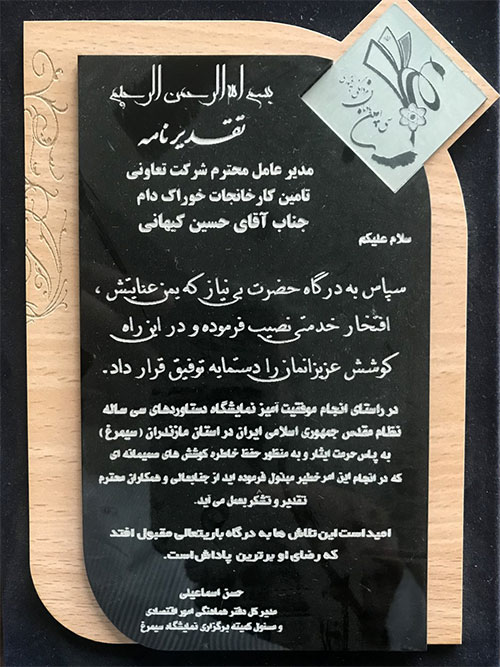 بسم الله الرحمن الرحیم
تقدیرنامه
مدیر عامل محترم شرکت تعاونی
تامین کارخانجات خوراک دام
جناب آقای حسین کیهانی
سلام علیکم
سپاس به درگاه حضرت بی نیاز که یمن عنایتش ،
افتخار خدمتی نصیب فرموده و در این راه
کوشش عزیزانمان را دستمایه توفیق قرار داد.
در راستای انجام موفقیت آمیز نمایشگاه دستاوردهای سی ساله
نظام مقدس جمهوری اسلامی ایران در استان مازندران ( سیمرغ )
به پاس حرمت ایثار و به منظور حفظ خاطره کوشش های صمیمانه ای
که در انجام این امر خطیر مبذول فرموده اید از جنابعالی و همکاران محترم
تقدیر و تشکر بعمل می آید.
امید است این تلاش ها به درگاه باریتعالی مقبول افتد
که رضای او برترین پاداش است.
حسن اسماعیلی
مدیر کل دفتر هماهنگی امور اقتصادی
و مسئول کمیته برگزاری نمایشگاه سیمرغ